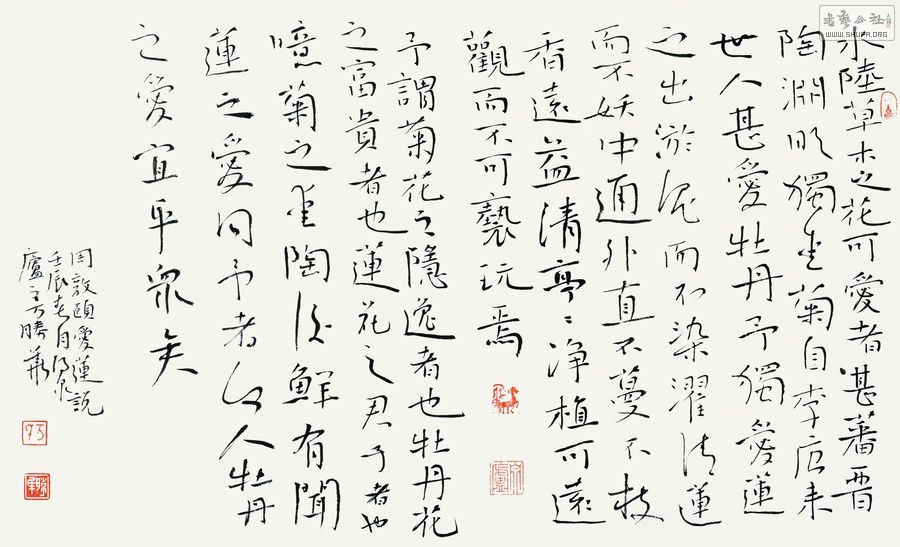 水陸草木之花可愛者甚蕃晋
陶淵明獨愛菊自李唐来
世人甚愛牡丹予獨愛蓮
之出淤泥而不染濯清蓮
而不妖中通外直不蔓不枝
香遠益清亭〻净植可遠
觀而不可褻玩焉
予謂菊花之隱逸者也牡丹花
之富貴者也蓮花之君子者也
噫菊之愛陶後鮮有聞
蓮之愛同予者何人牡丹
之愛宜乎衆矣
周敦頤愛蓮説
壬辰春月
廬主万勝華
書藝公社
WWW.SHUFA.ORG